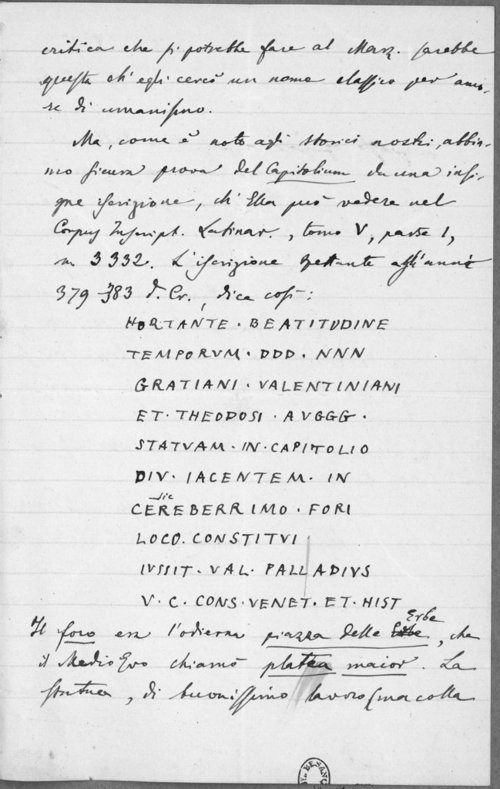 critica che si potrebbe fare al Marz. sarebbe
questa ch'egli cercò un nome classico per amo-
re di umanismo.
Ma, come è noto agli storici nostri, abbia-
mo sicura prova del Capitolium da una insi-
gne iscrizione, ch'Ella può vedere nel
Corpus Inscript. Latinar., tomo V, parte 1,
n. 3332. L'iscrizione spettante agli anni
379-383 d. Cr., dice così:
HORTANTE · BEATITUDINE
TEMPORVM · DDD · NNN
GRATIANI · VALENTINIANI
ET · THEODOSI · AVGGG ·
STATVAM · IN · CAPITOLIO
DIV · IACENTEM · IN
sic
CEREBERRIMO · FORI
LOCO · CONSTITVI
IVSSIT · VAL · PALLADIVS
V · C · CONS · VENET · ET · HIST
Il foro era l'odierna piazza delle Erbe, che
il Medio Evo chiamò platea maior. La
statua, di buonissimo lavoro (ma colla